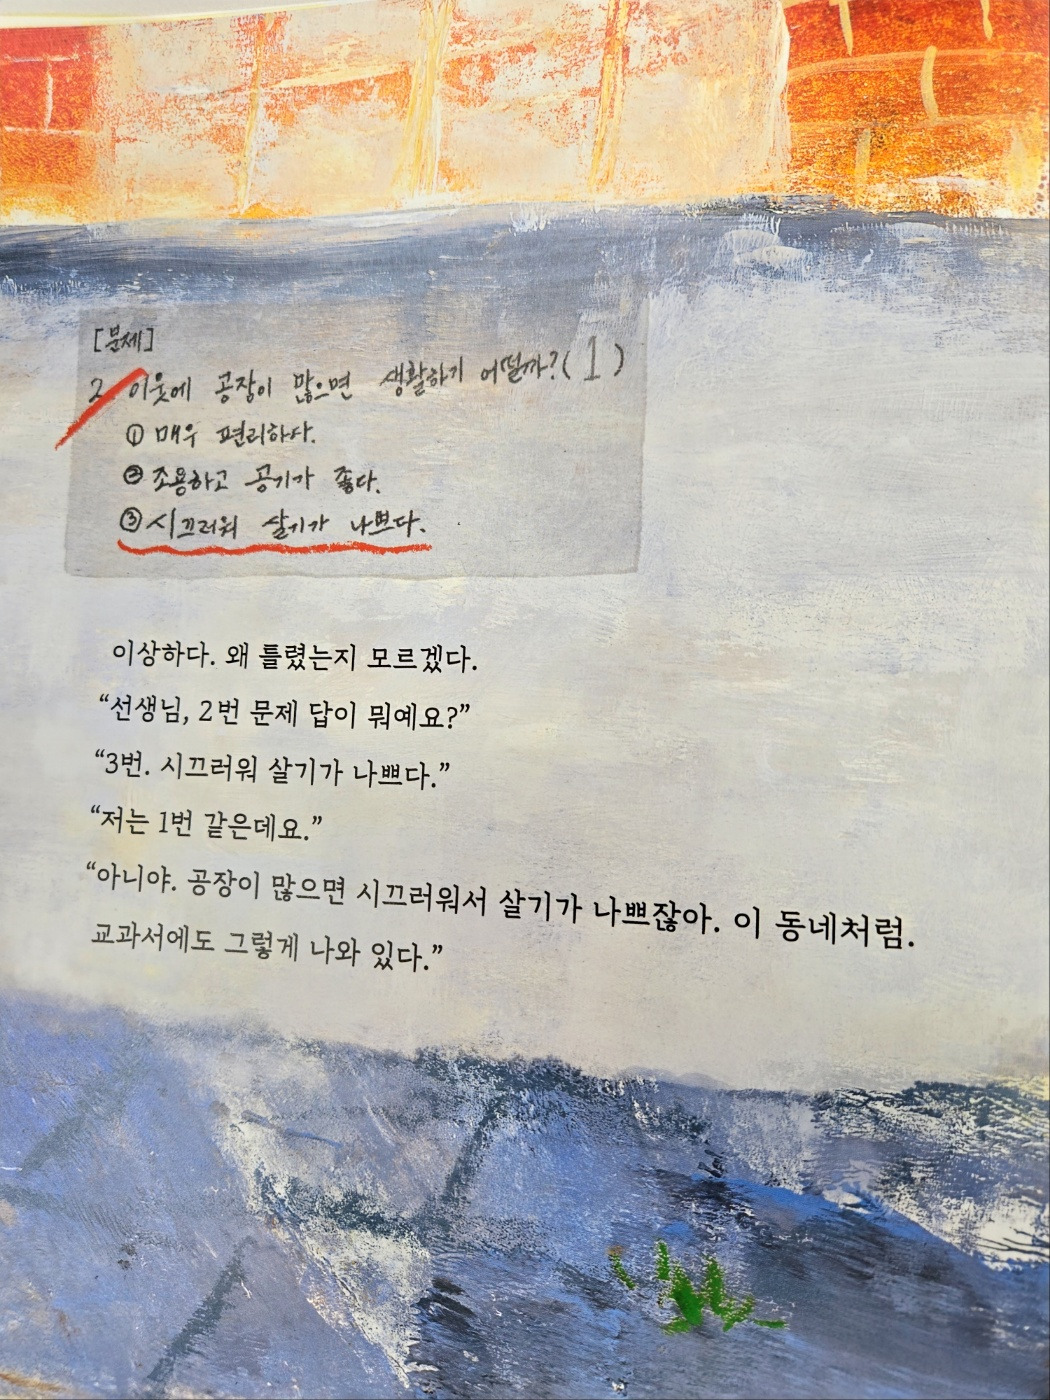 [문제]
2 이웃에 공장이 많으면 생활하기 어떨까? ( 1 )
① 매우 편리하다.
② 조용하고 공기가 좋다.
③ 시끄러워 살기가 나쁘다.
이상하다. 왜 틀렸는지 모르겠다.
“선생님, 2번 문제 답이 뭐예요?”
“3번. 시끄러워 살기가 나쁘다.”
“저는 1번 같은데요.”
“아니야. 공장이 많으면 시끄러워서 살기가 나쁘잖아. 이 동네처럼.
교과서에도 그렇게 나와 있다.”